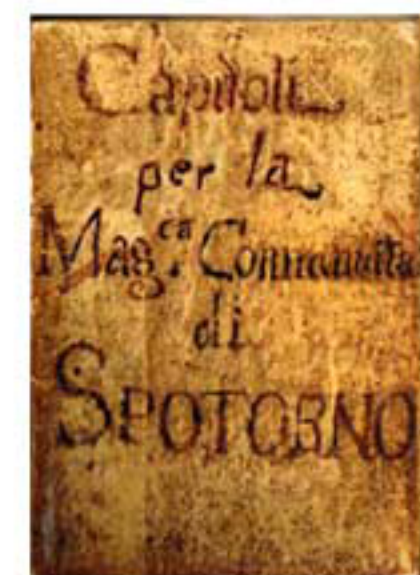 Capitoli
per la
Mag.ca Communita
di
SPOTORNO